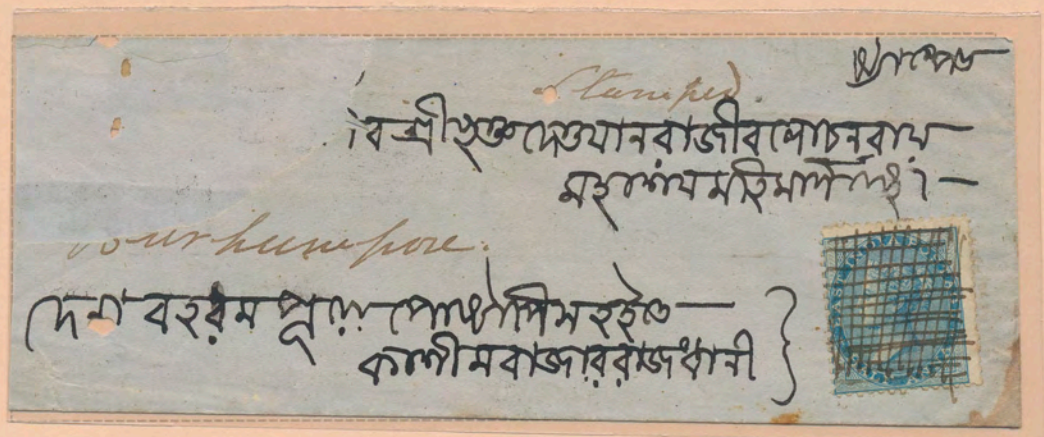 ষ্ট্যাম্পেড
Stamped.
শ্রীযুক্ত দেওয়ান রাজীবলোচন রায়
মহাশয় মহিমার্ণবেষু।
Burhumpore.
বহরমপুর পোষ্টাপিস হইতে
কাশীমবাজার রাজধানী